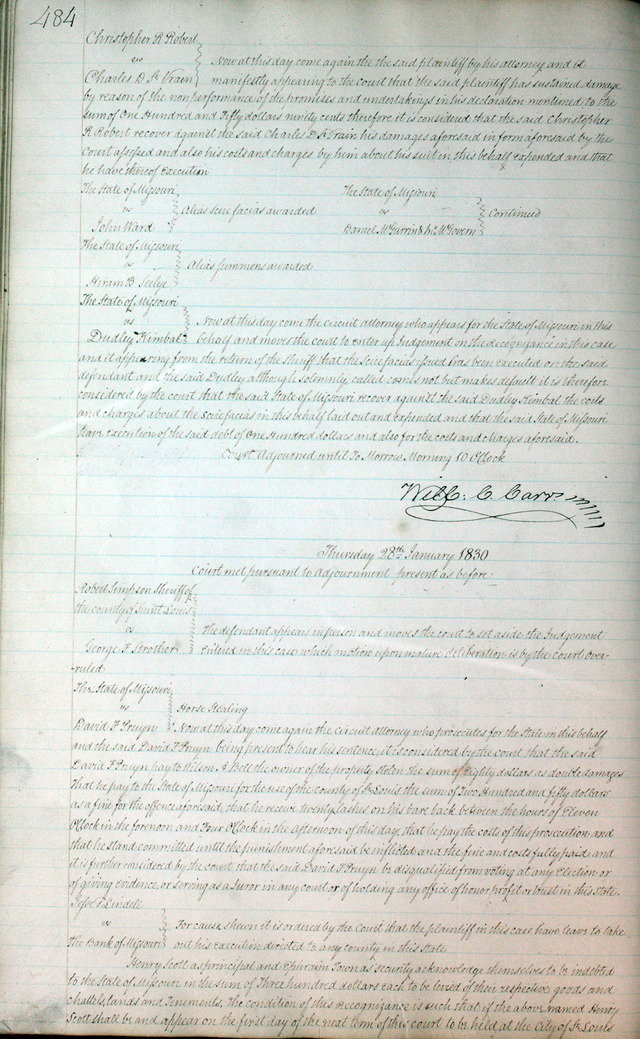 484
Christopher R Robert
vs
Charles D St Vrain
Now at this day come again the the said plaintiff by his attorney and it
manifestly appearing to the court that the said plaintiff has sustained damage
by reason of the nonperformance of the promises and undertakings in his declaration mentioned to the
sum of One Hundred and Fifty dollars ninety cents therefore it is considered that the said Christopher
R Robert recover against the said Charles D St Vrain his damages aforesaid in form aforesaid by the
Court assessed and also his costs and charges by him about his suit in this behalf expended and that
he have thereof Execution
The State of Missouri
vs
John Ward
Alias scire facias awarded
The State of Missouri
vs
Daniel McGurrin &
Continued
The State of Missouri
vs
Hiram B
Alias summons awarded
The State of Missouri
vs
Dudley Kimbal
Now at this day come the circuit attorney who appears for the State of Missouri in this
behalf and moves the court to enter up Judgement on the recognizance in this case
and it appearing from the return of the Sheriff that the Scire facias issued has been executed on the said
defendant and the said Dudley although solemnly called comes not but makes default it is therefore
considered by the court that the said State of Missouri recover against the said Dudley Kimbal the costs
and charges about the scire facias in this behalf laid out and expended and that the said State of Missouri
have execution of the said debt of One Hundred dollars and also for the costs and charges aforesaid.
Court Adjourned until To Morrow Morning 10 O'Clock
Will. C. Carr
Thursday 28th January 1830
Court met pursuant to adjournment present as before
Robert Simpson Sheriff of
the county of Saint Louis
vs
George F Strother
The defendant appears in person and moves the court to set aside the Judgement
entered in this case which motion upon mature deliberation is by the court over-
-ruled
The State of Missouri
vs
David F Pruyn
Horse Stealing
Now at this day come again the circuit attorney who prosecutes for the State in this behalf
and the said David F Pruyn being present to hear his sentence, it is considered by the court that the said
David F Pruyn pay to Wilson A Bell the owner of the property stolen the sum of Eighty dollars as double damages
That he pay to the State of Missouri for the use of the county of St Louis the sum of Two Hundred and fifty dollars
as a fine for the offence aforesaid, that he receive twenty lashes on his bare back between the hours of Eleven
O'Clock in the forenoon and Four O'Clock in the Afternoon of this day, that he pay the costs of this prosecution and
that he stand committed until the punishment aforesaid be inflicted and the fine and costs fully paid, and
it is further considered by the court that the said David F Pruyn be disqualified from voting at any Election or
of giving evidence, or serving as a Juror in any court or of holding any office of honor profit or trust in this State.
Jesse G Lindell
vs
The Bank of Missouri
For cause shewn it is ordered by the Court that the plaintiff in this case have leave to take
out his execution directed to any county in this State
Henry Scott as principal and Ephraim Town as Security acknowledge themselves to be indebted
to the State of Missouri in the sum of Three hundred dollars each to be levied of their respective goods and
chattels, lands and Tenements, The condition of this Recognizance is such that if the above named Henry
Scott shall be and appear on the first day of the next term of this court to be held at the City of St Louis